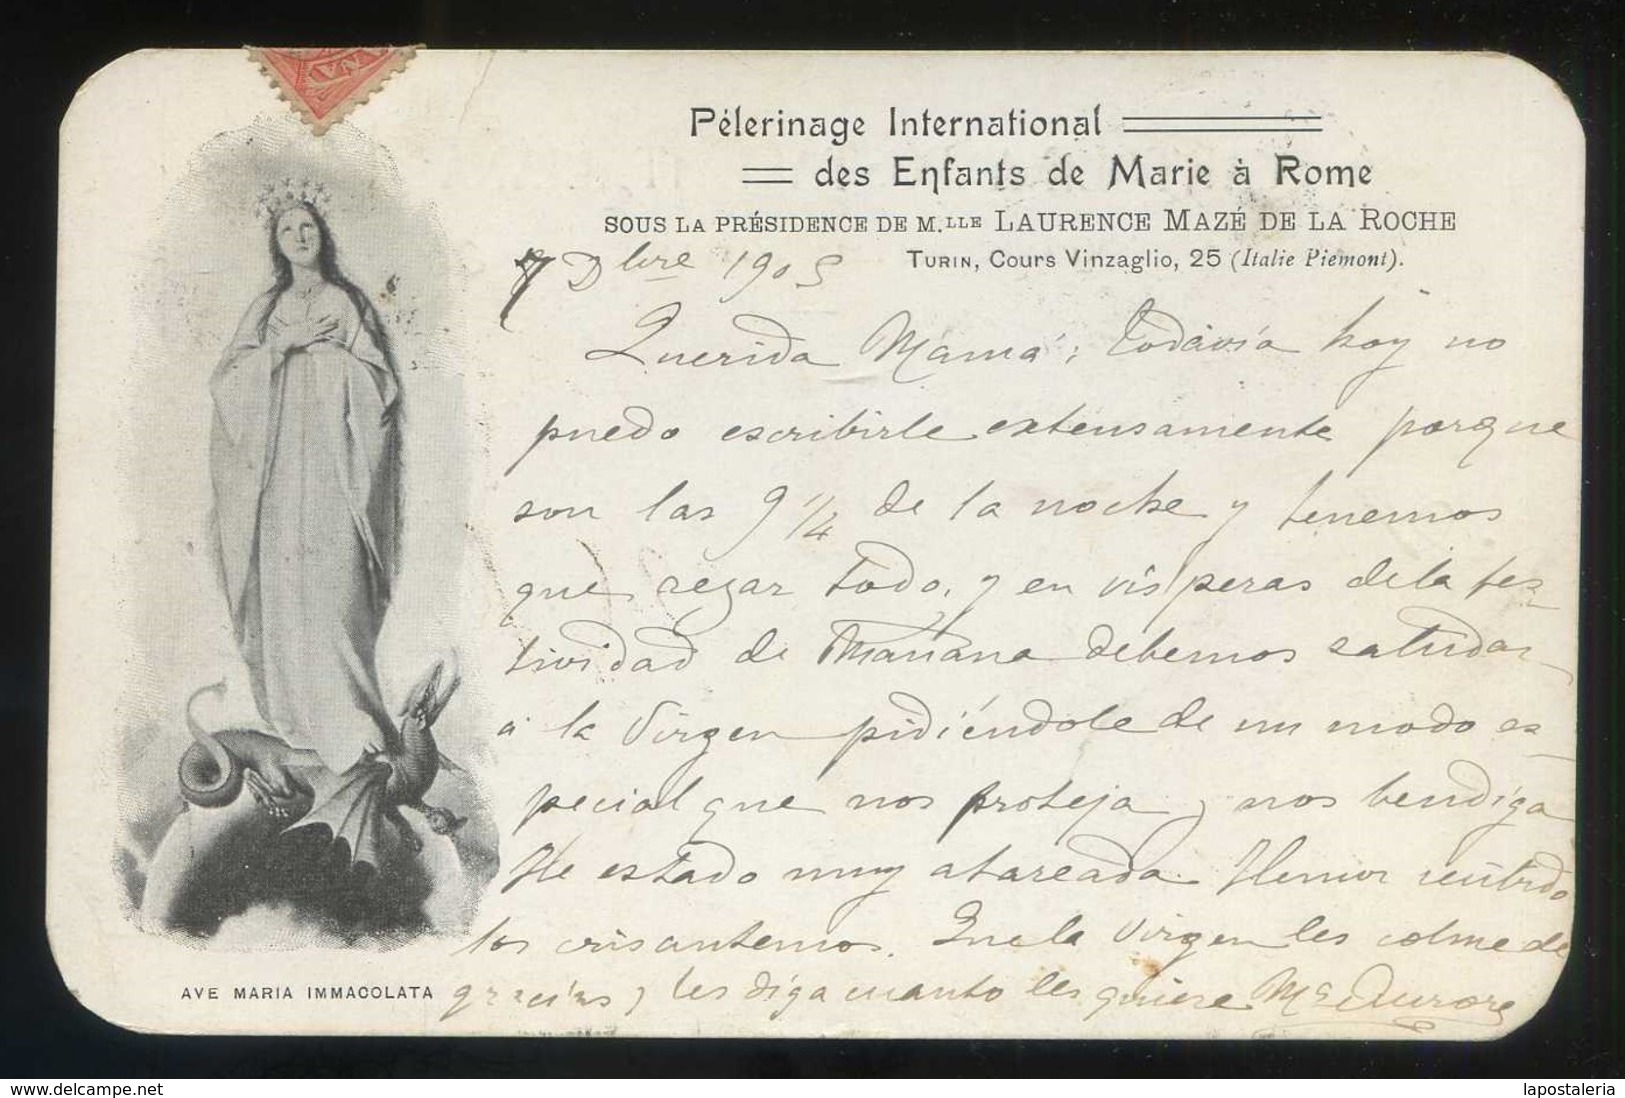 Pèlerinage International
des Enfants de Marie à Rome
SOUS LA PRÉSIDENCE DE M.LLE LAURENCE MAZÉ DE LA ROCHE
TURIN, Cours Vinzaglio, 25 (Italie Piemont).
7 Dbre 1905
Querida Mamá: Todavía hoy no
puedo escribirle extensamente porque
son las 9 1/4 de la noche y tenemos
que rezar todo, y en vísperas de la fes-
tividad de Mañana debemos saludar
á la Virgen pidiéndole de un modo es-
pecial que nos proteja y nos bendiga
He estado muy atareada. Hemos recibido
los crisantemos. Que la Virgen les colme de
gracias y les diga cuanto les quiere Mª Aurora
AVE MARIA IMMACOLATA
delcampe.net
lapostaleria